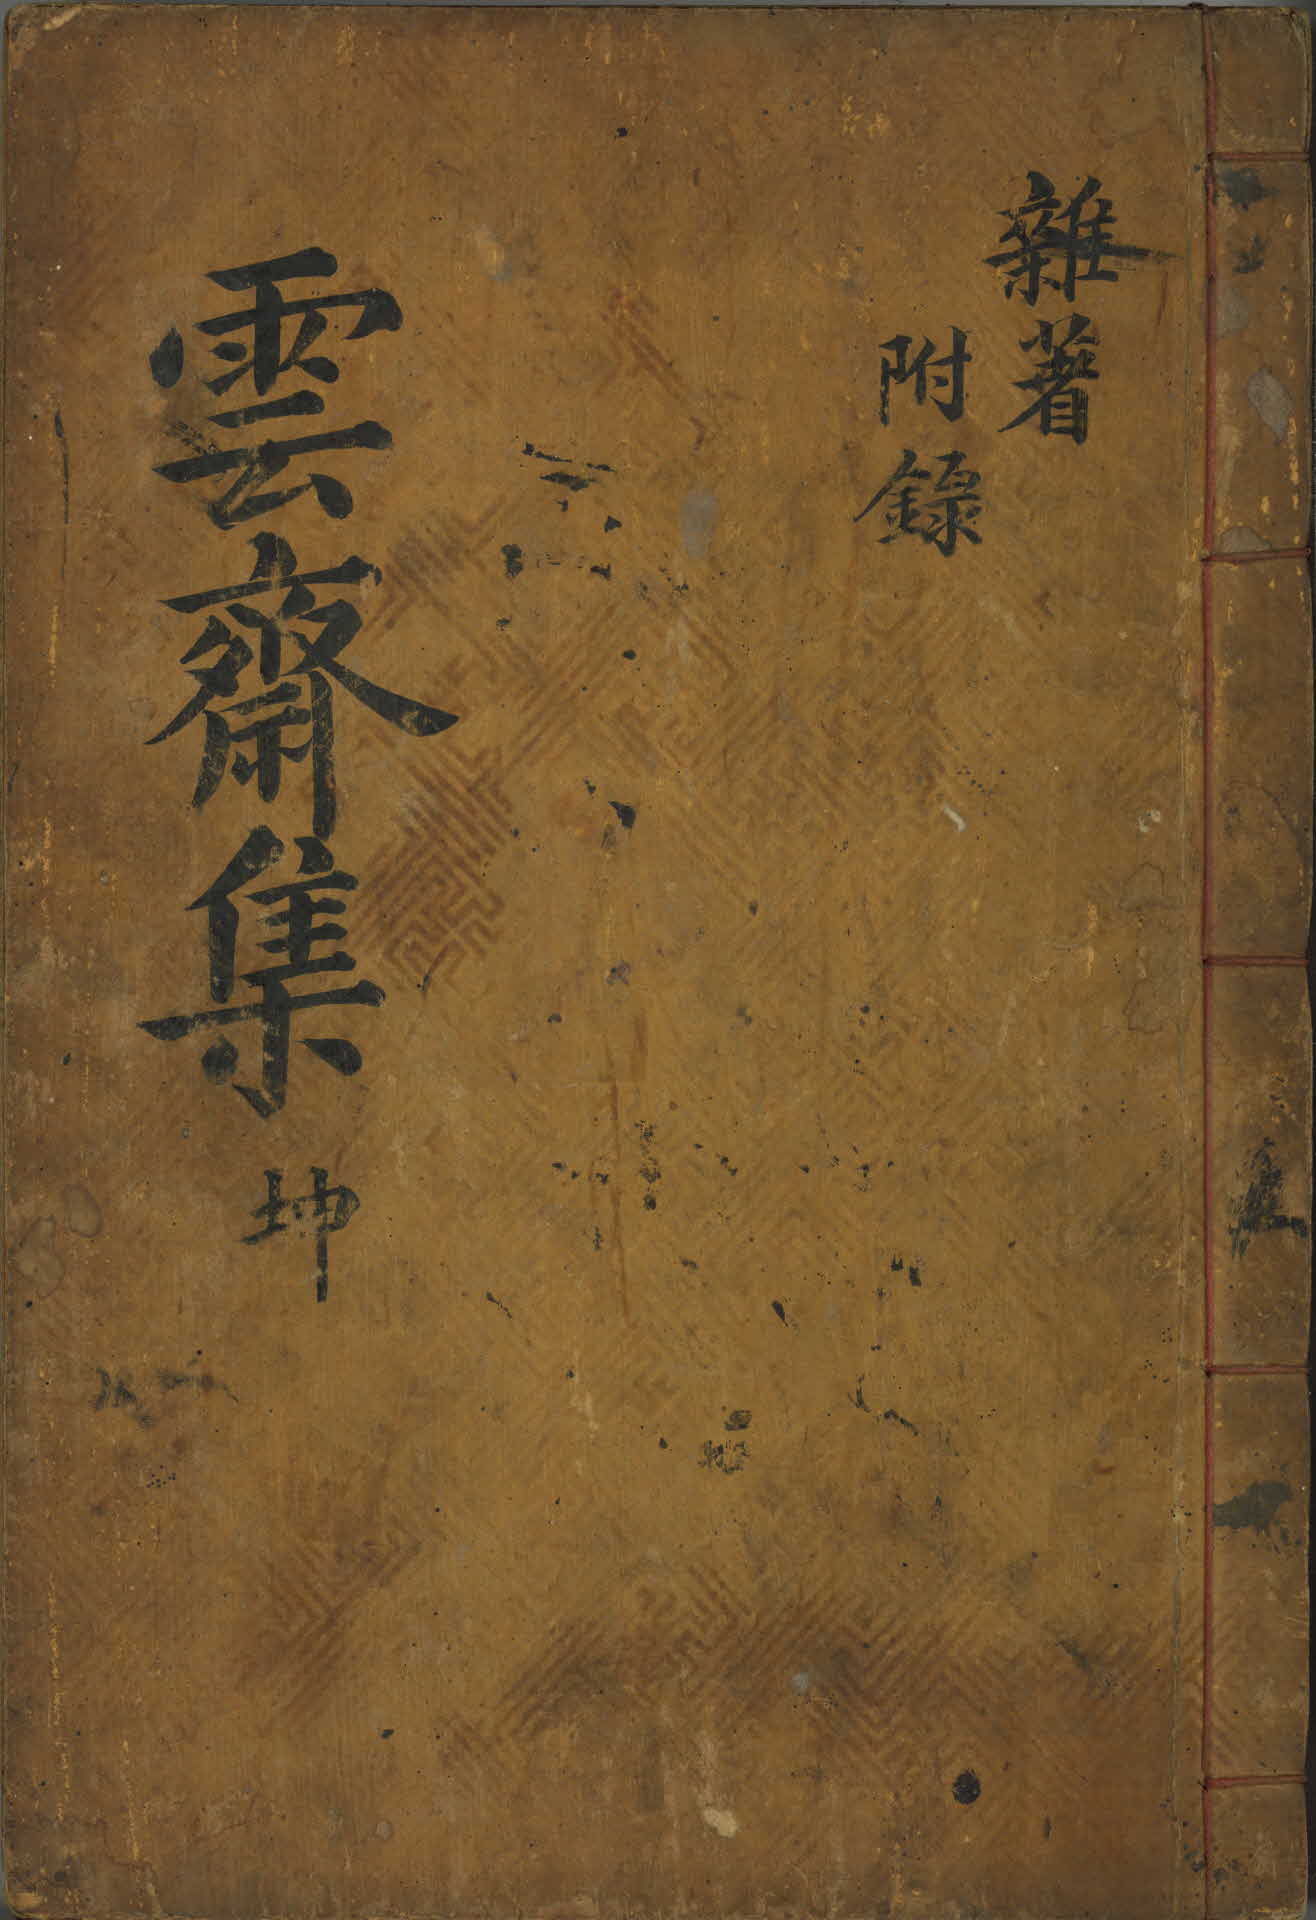 雜著
附錄
雲齋集 坤